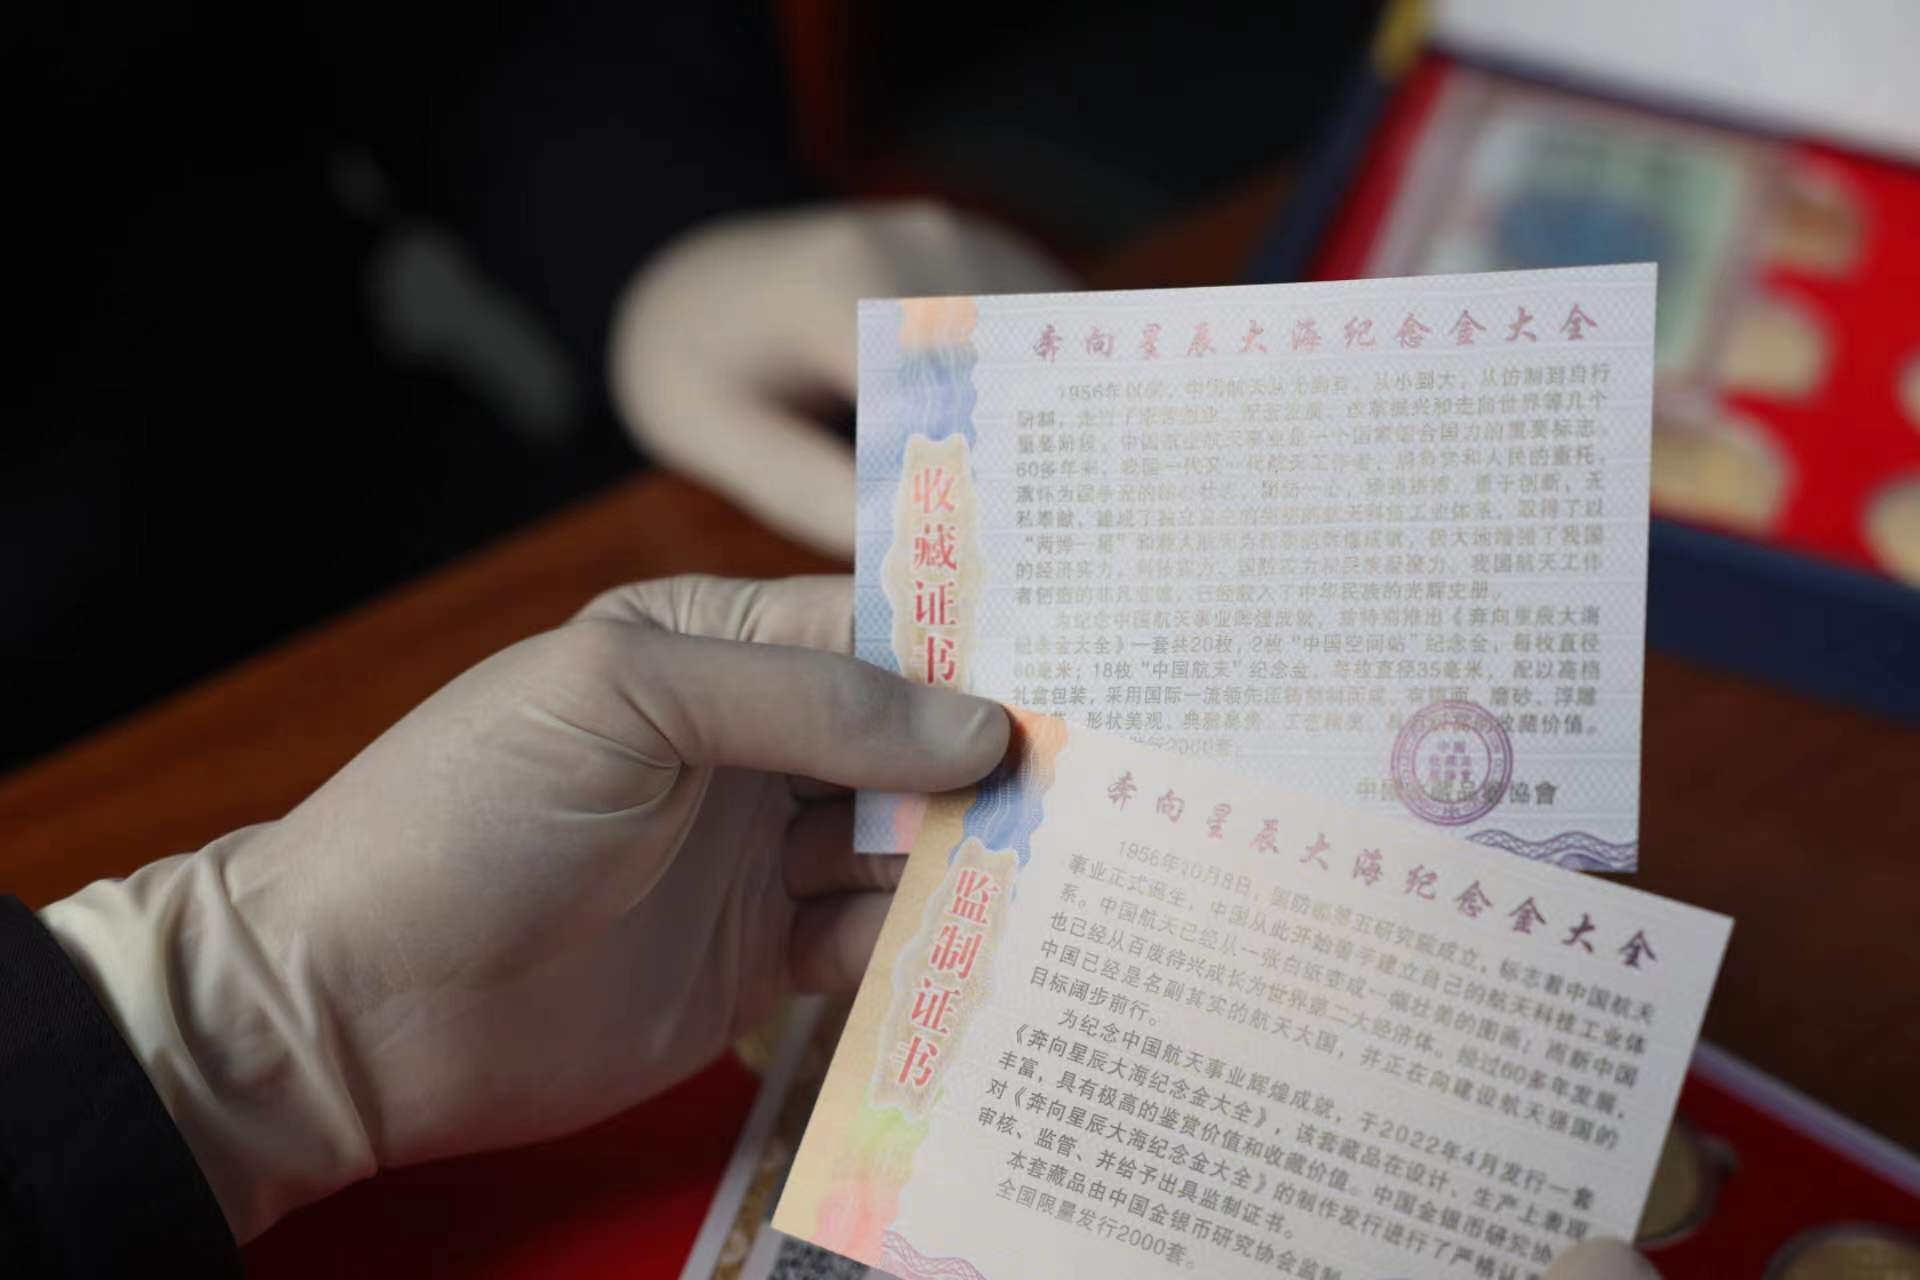 奔向星辰大海纪念金大全
收藏证书
1956年以来，中国航天从无到有，从小到大，从仿制到自行
重要阶段，中国
航天事业是一个国家综合国力的重要标志。
60多年来，我国一代又一代航天工作者，肩负党和人民的重托，
私奉献，建成了独立
的航天科技工业体系，取得了以
“两弹一星”和载人航天为
的辉煌成就，极大地增强了我国
的经济实力、
国防实力和民族凝聚力，我国航天工作
者创造的非凡业绩，已经载入了中华民族的光辉史册。
为纪念中国航天事业辉煌成就，
特别推出《奔向星辰大海
纪念金大全》一套共20枚，2枚“中国空间站”纪念金，每枚直径
60毫米；18枚“中国航天”纪念金，每枚直径35毫米，配以高档
礼盒包装，采用国际一流领先
磨砂、浮雕
形状美观、典雅高贵、工艺精美，具有
收藏价值。
2000套。
奔向星辰大海纪念金大全
监制证书
1956年10月8日，国防部第五研究院成立，标志着中国航天
事业正式诞生，中国从此开始着手建立自己的航天科技工业体
系。中国航天已经从一张白纸变成一幅壮美的图画；而新中国
也已经从百废待兴成长为世界第二大经济体。经过60多年发展，
中国已经是名副其实的航天大国，并正在向建设航天强国的
目标阔步前行。
为纪念中国航天事业辉煌成就，于2022年4月发行一套
《奔向星辰大海纪念金大全》，该套藏品在设计、生产上表现
丰富，具有极高的鉴赏价值和收藏价值。中国金银币研究协
对《奔向星辰大海纪念金大全》的制作发行进行了严格
审核、监管、并给予出具监制证书。
本套藏品由中国金银币研究协会监制
全国限量发行2000套。